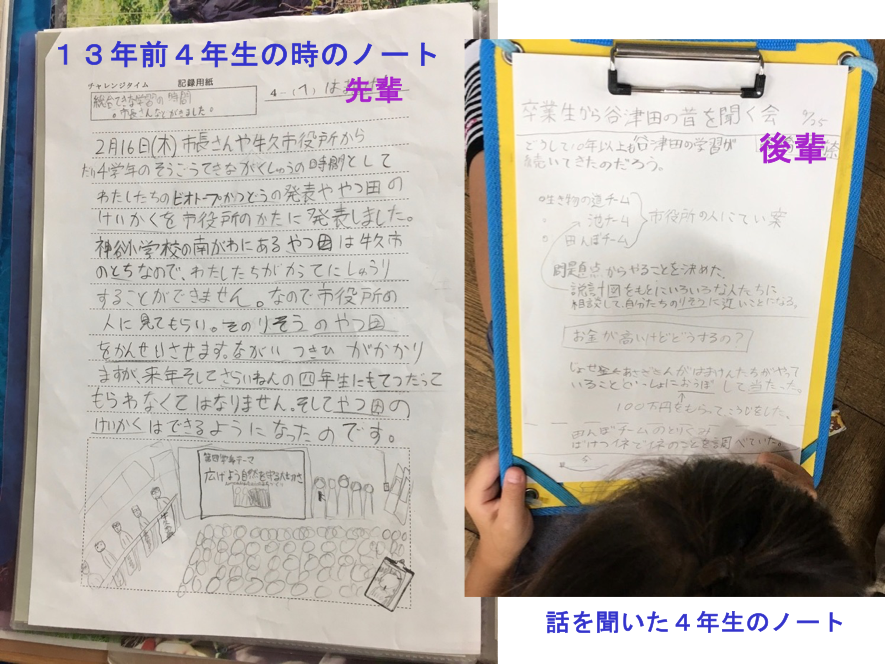 13年前4年生の時のノート
チャレンジタイム 記録用紙
先輩
総合てきな学習の時間
。市長さんなどがきました。
4-(1) は
2月16日(木)市長さんや牛久市役所から
4学年のそうごうてきながくしゅうの時間として
わたしたちのビオトープかつどうの発表ややつ田の
けいかくを市役所のかたに発表しました。
神谷小学校の南がわにあるやつ田は牛久市
のとちなので、わたしたちがかってにしゅうり
することができません。なので市役所の
人に見てもらい。そのりそうのやつ田
をかんせいさせます。ながいつきひがかかり
ますが、来年そしてさらいねんの四年生にもてつだって
もらわなくてはなりません。そしてやつ田の
けいかくはできるようになったのです。
第四学年テーマ
広げよう自然を守る人もかさ
卒業生から谷津田の昔を聞く会 9/25
後輩
どうして10年以上も谷津田の学習が
続いてきたのだろう。
生き物の道チーム
池チーム
田んぼチーム
市役所の人にてい案
問題点からやることを決めた。
設計図をもとにいろいろな人たちに
相談して、自分たちのりそうに近いことになる。
お金が高いけどどうするの?
して当たった。
100万円をもらってこうじをした。
田んぼチームのとりくみ
ばけつ
調べていた。
話を聞いた4年生のノート